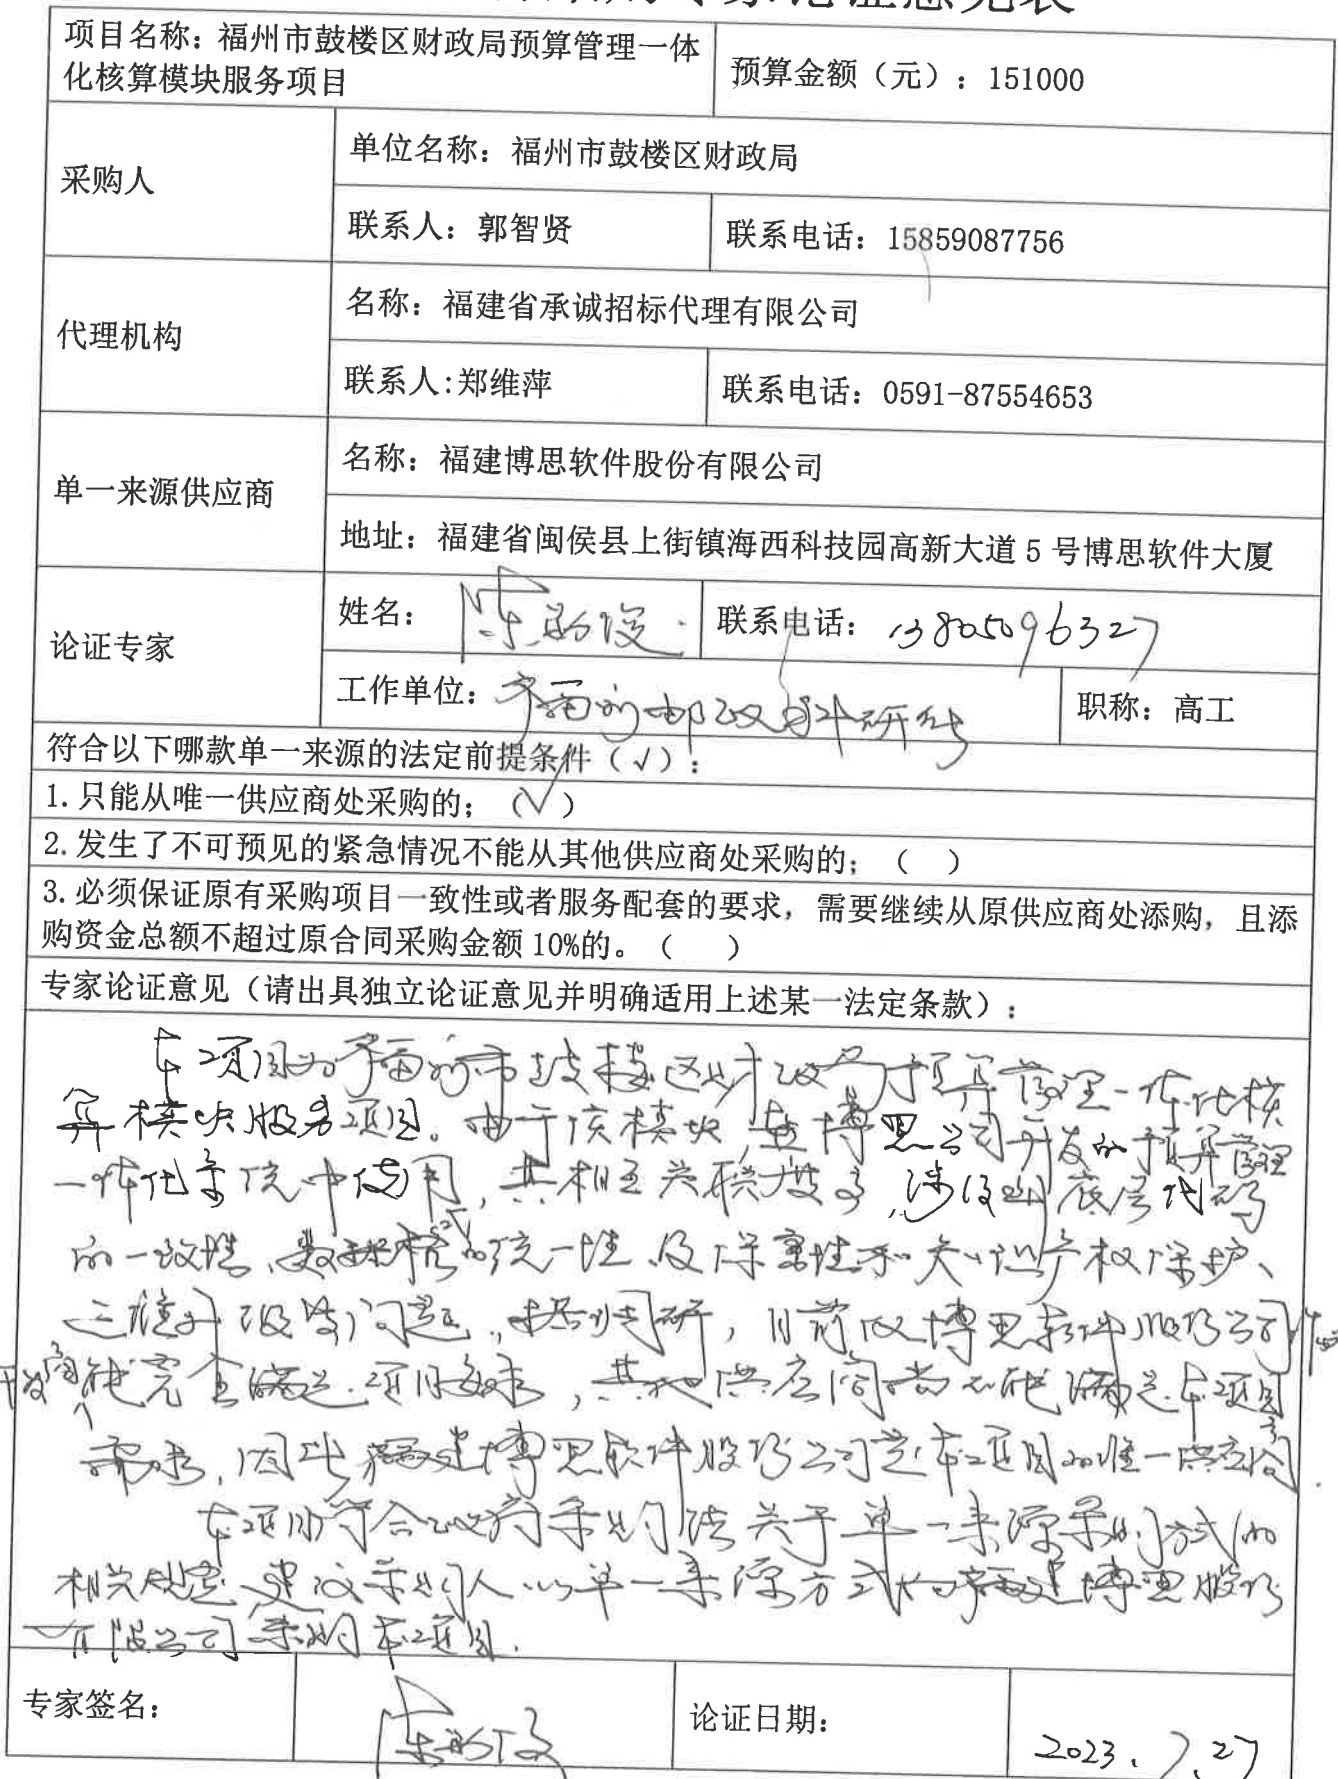 家论证意见表
项目名称：福州市鼓楼区财政局预算管理一体
化核算模块服务项目
预算金额（元）：151000
采购人
单位名称：福州市鼓楼区财政局
联系人：郭智贤
联系电话：15859087756
代理机构
名称：福建省承诚招标代理有限公司
联系人:郑维萍
联系电话：0591-87554653
单一来源供应商
名称：福建博思软件股份有限公司
地址：福建省闽侯县上街镇海西科技园高新大道 5 号博思软件大厦
论证专家
姓名：陈
联系电话：13805096327
工作单位：福州邮政科研
职称：高工
符合以下哪款单一来源的法定前提条件（√）：
1.只能从唯一供应商处采购的；（√）
2.发生了不可预见的紧急情况不能从其他供应商处采购的；（ ）
3.必须保证原有采购项目一致性或者服务配套的要求，需要继续从原供应商处添购，且添
购资金总额不超过原合同采购金额 10%的。（ ）
专家论证意见（请出具独立论证意见并明确适用上述某一法定条款）：
本项目为福州市鼓楼区财政局预算管理一体化核
算模块服务项目。由于该模块，在博思公司开发的预算管理
一体化系统中使用，其相互关联度高，涉及到底层代码
的一致性、数据格式的统一性、及保密性和知识产权保护、
运维升级等问题。据调研，目前仅博思软件股份公司
能完全满足项目要求，其他供应商尚不能满足本项目
需求，因此福建博思软件股份公司是本项目的唯一供应商.
本项目符合政府采购法关于单一来源采购方式的
相关规定，建议采购人以单一来源方式向福建博思股份
有限公司采购本项目.
专家签名：
陈
论证日期：
2023.7.27